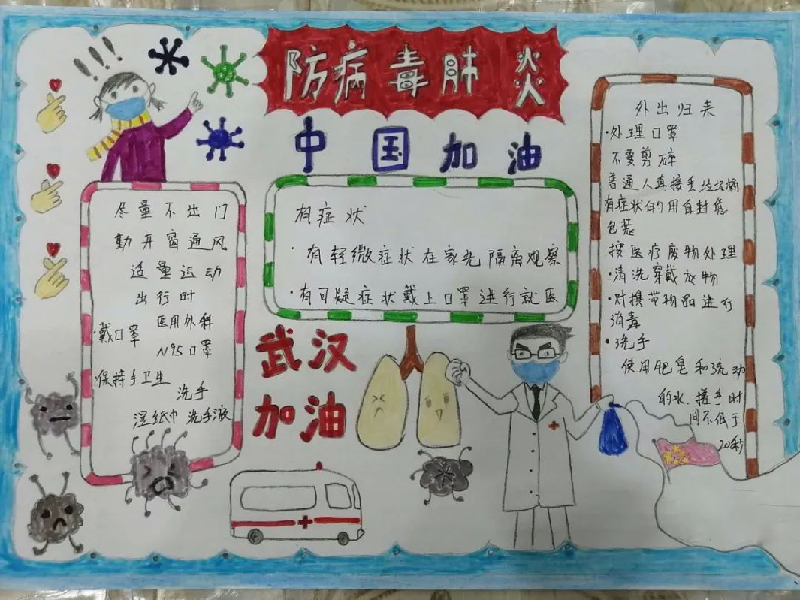 防病毒肺炎
中国加油
尽量不出门
勤开窗通风
适量运动
出行时
·戴口罩 医用外科
N95口罩
保持手卫生 洗手
湿纸巾 洗手液
有症状
·有轻微症状在家先隔离观察
·有可疑症状戴上口罩进行就医
武汉
加油
外出归来
·处理口罩
不要剪碎
普通人直接丢垃圾桶
有症状的用自封袋
包装
按医疗废物处理
·清洗穿戴衣物
·对携带物品进行
消毒
·洗手
使用肥皂和流动
的水,搓手时
间不低于
20秒